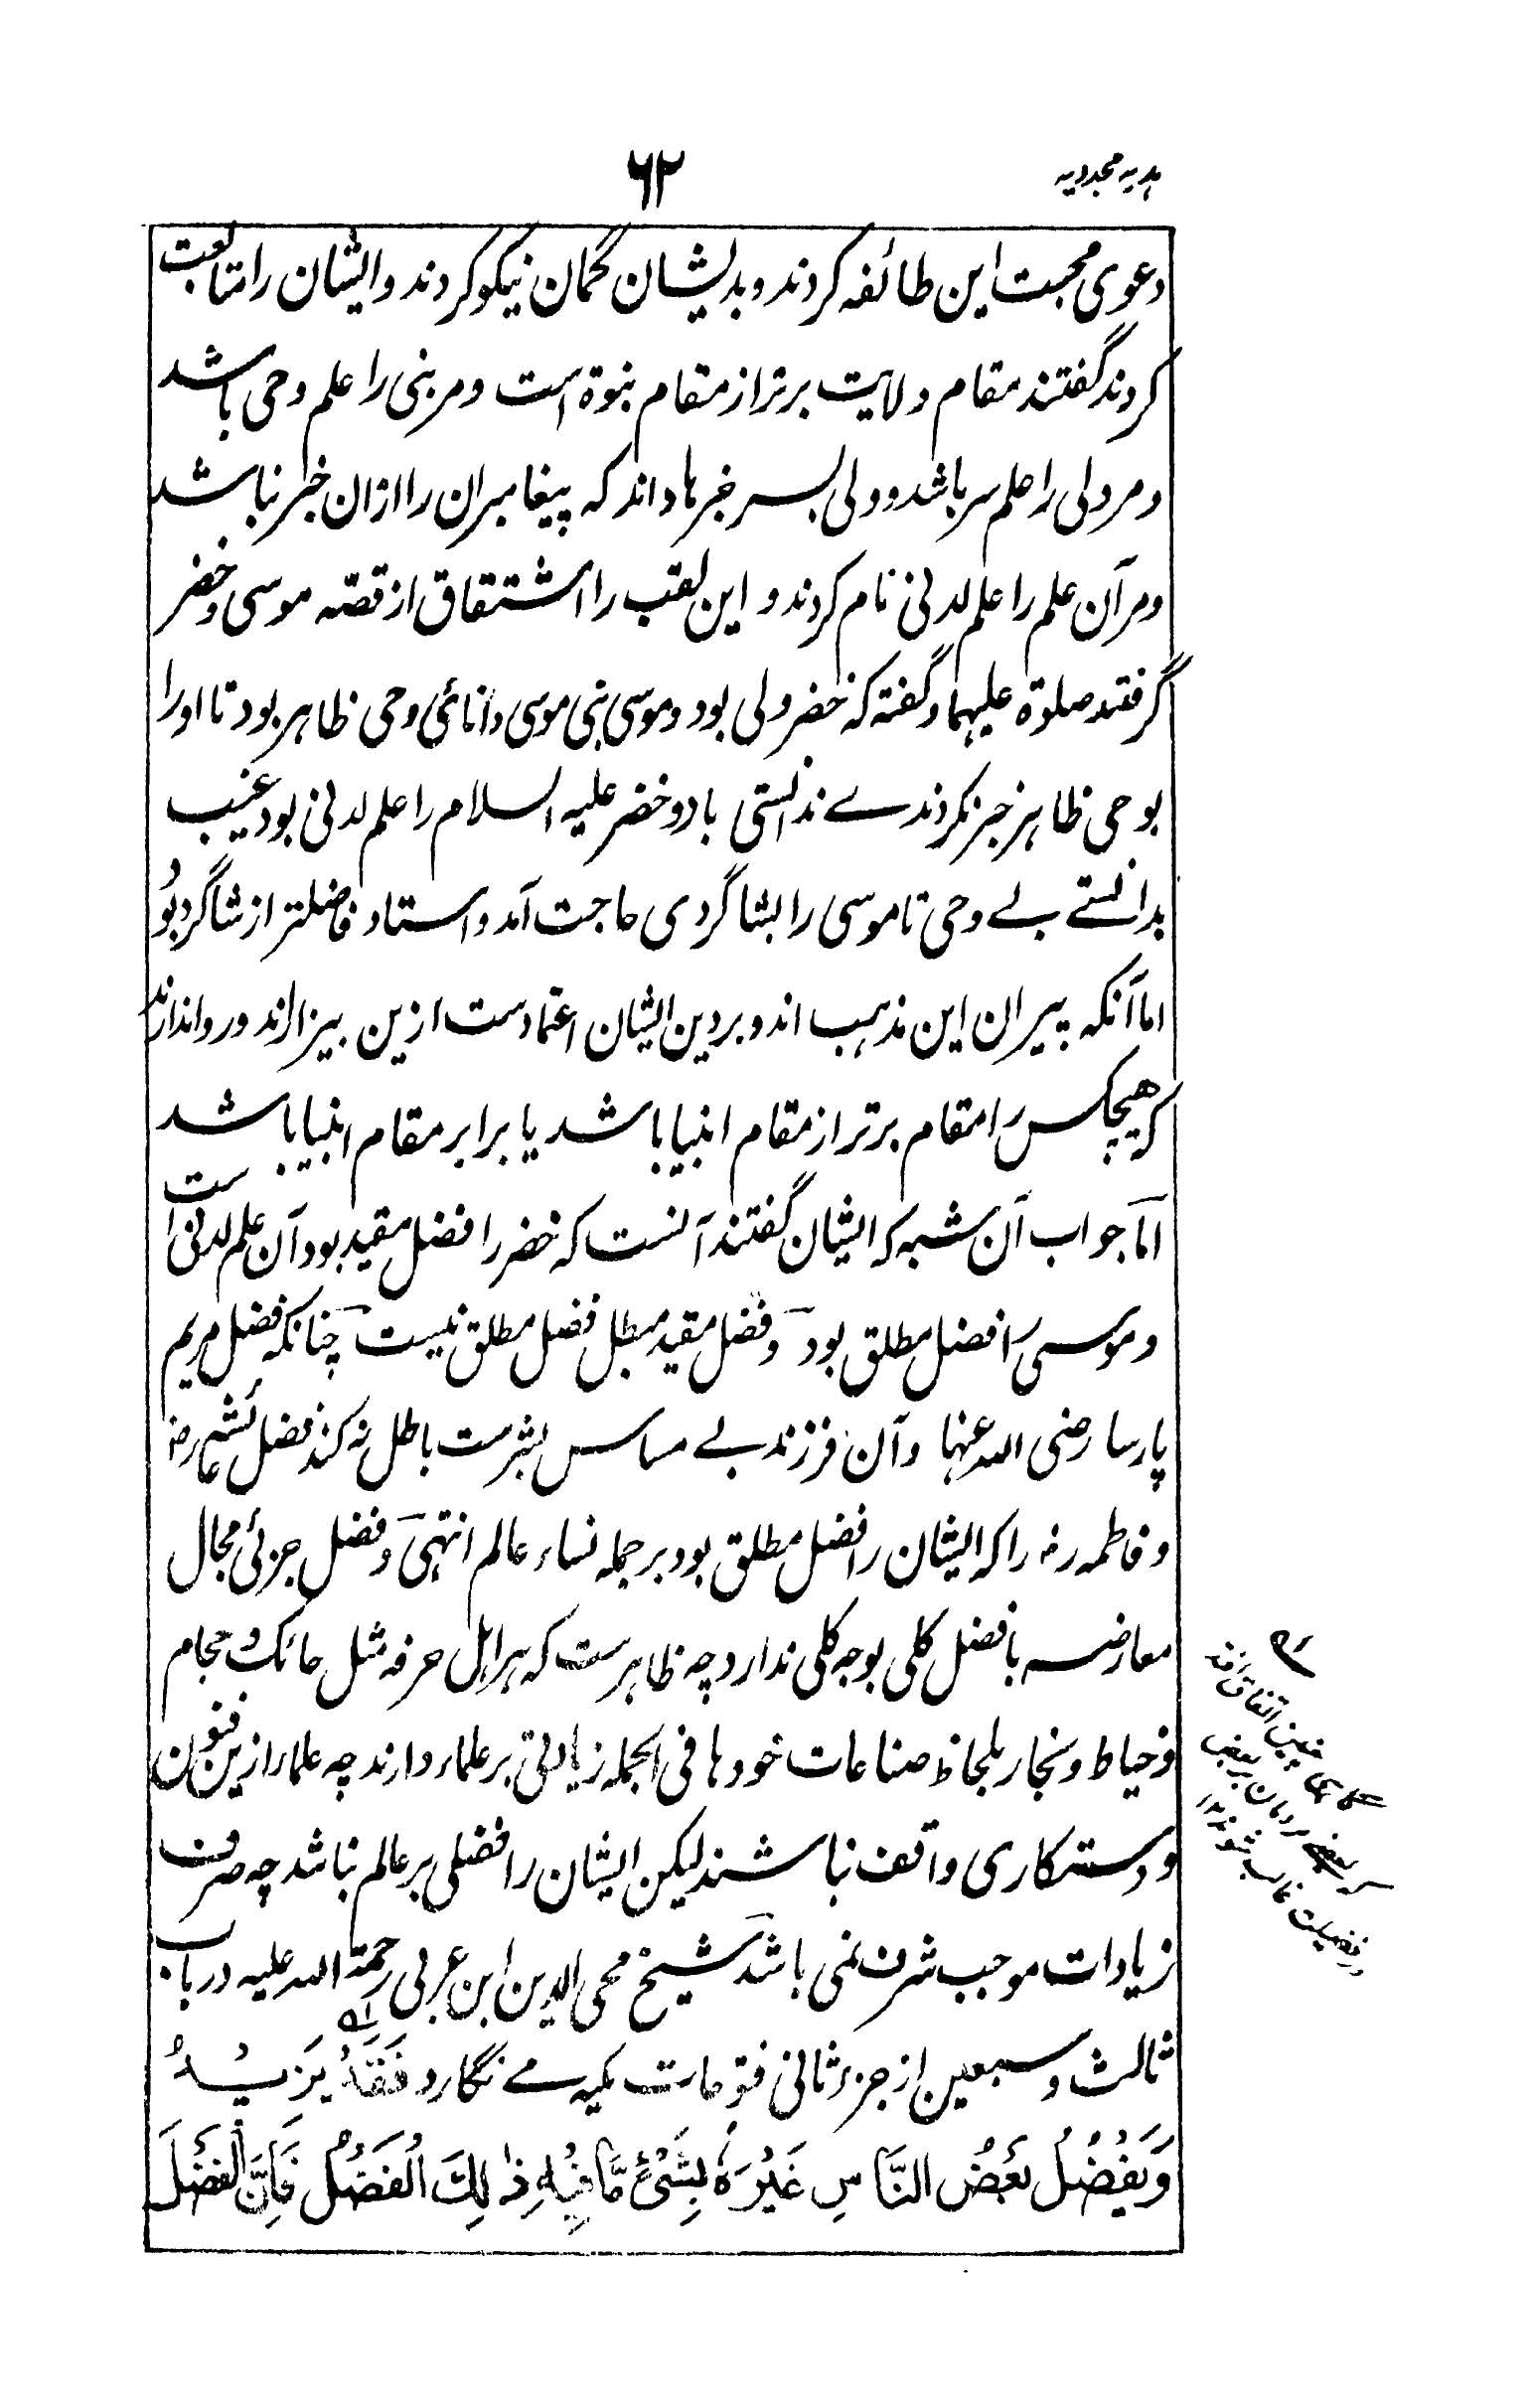 ہدیہ مجددیہ
۶۲
دعوی محبت این طائفہ کردند و بدیشان گمان نیکو کردند و ایشان را متابعت
کردند گفتند مقام ولایت برتر از مقام نبوة است و مر نبی را علم وحی باشد
و مر ولی را علم سر باشد و ولی بسر خبرہا داند کہ پیغامبران را ازان خبر نباشد
و مر آن علم را علم لدنی نام کردند و این لقب را اشتقاق از قصّہ موسی و خضر
گرفتند صلوة علیہما و گفتہ کہ خضر ولی بود و موسی نبی موسی دانائی وحی ظاہر بود تا اورا
بوحی ظاہر خبر نکردندے ندانستی بادو خضر علیہ السلام را علم لدنی بود غیب
بدانستے بے وحی تا موسی را بشاگردی حاجت آمد و استاد فاضلتر از شاگرد بُوَد
اما آنکہ پیران این مذہب اند و بر دین ایشان اعتمادست ازین بیزارند و روا ندارند
کہ ہیچکس را مقام برتر از مقام انبیا باشد یا برابر مقام انبیا باشد
اما جواب آن شبہ کہ ایشان گفتند آنست کہ خضر را فضل مقید بود آن علم لدنی است
و موسی را فضل مطلق بود و فضل مقید مبطل فضل مطلق نیست چنانکہ فضل مریم
پارسا رضی اللہ عنہا و آن فرزند بے مساس بشرست باطل نہ کند فضل عائشہ رض
و فاطمہ رض را کہ ایشان را فضل مطلق بود بر جملہ نساء عالم انتہی و فضل جزئی مجال
معارضہ با فضل کلی بوجہ کلی ندارد چہ ظاہرست کہ ہر اہل حرفہ مثل حائک و حجام
و خیاط و نجار بلحاظ صناعات خودہا فی الجملہ زیادتی بر علماء دارند چہ علماء ازین فنون
و دستکاری واقف نباشند لیکن ایشان را فضلی بر عالم نباشد چہ صرف
زیادات موجب شرف نمی باشد شیخ محی الدین ابن عربی رحمۃ اللہ علیہ در باب
ثالث و سبعین از جزء ثانی فتوحات مکیہ مے نگارد فَقَدْ یَزِیْدُ
وَیَفْضُلُ بَعْضُ النَّاسِ غَیْرَہٗ بِشَیْءٍ مَّا فِیْہِ ذٰلِکَ الْفَضْلُ فَاِنَّ الْفَضْلَ
گاہی چنین اتفاق افتد
کہ بعضے مردمان بر بعض